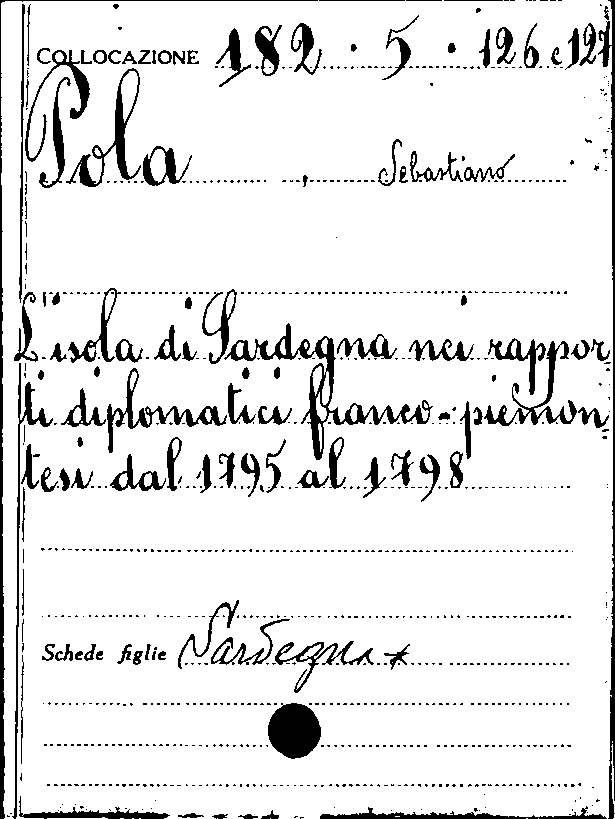 COLLOCAZIONE 182 · 5 · 126 e 127
Pola , Sebastiano
L'isola di Sardegna nei rappor
ti diplomatici franco-piemon
tesi dal 1795 al 1798
Schede figlie Sardegna *